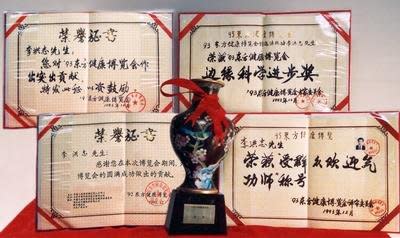 荣誉证书
李洪志先生:
您对'93东方健康博览会作
出突出贡献,
特发此证 以资鼓励
'93东方健康博览会
1993年12月
'93东方健康博览会
'93东方健康博览会的 李洪志先生
荣获'93东方健康博览会
边缘科学进步奖
'93东方健康博览会
1993年12月
荣誉证书
李洪志先生:
感谢您在本次博览会期间,
博览会的圆满成功做出的贡献。
'93东方健康博览
'93东方健康博览
李洪志先生:
荣获受群众欢迎气
功师"称号
'93东方健康博览会评审委员会
1993年12月